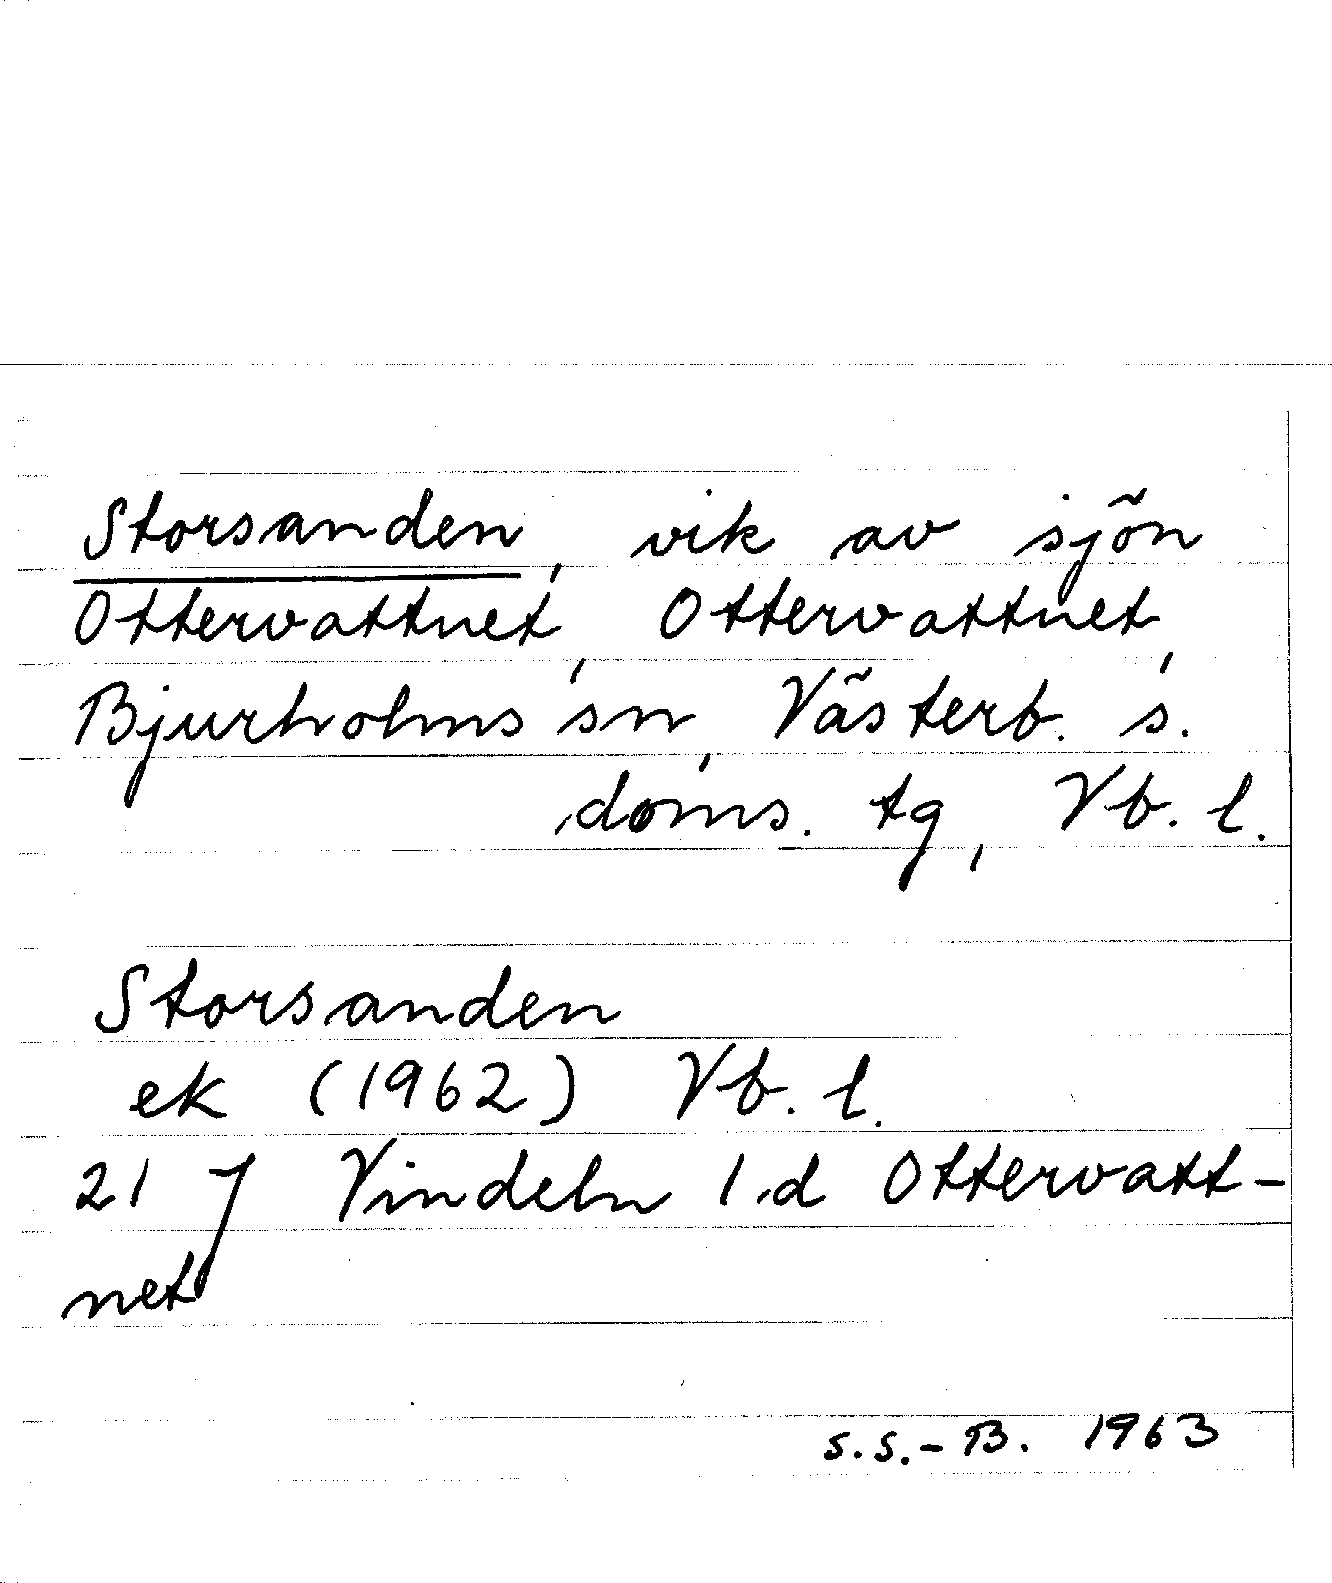 Storsanden, vik av sjön
Ottervattnet, Ottervattnet,
Bjurholms sn, Västerb. s.
doms. tg, Vb. l.
Storsanden
ek (1962) Vb. l.
21 J Vindeln 1.d Ottervatt-
net
S.S.-B. 1963